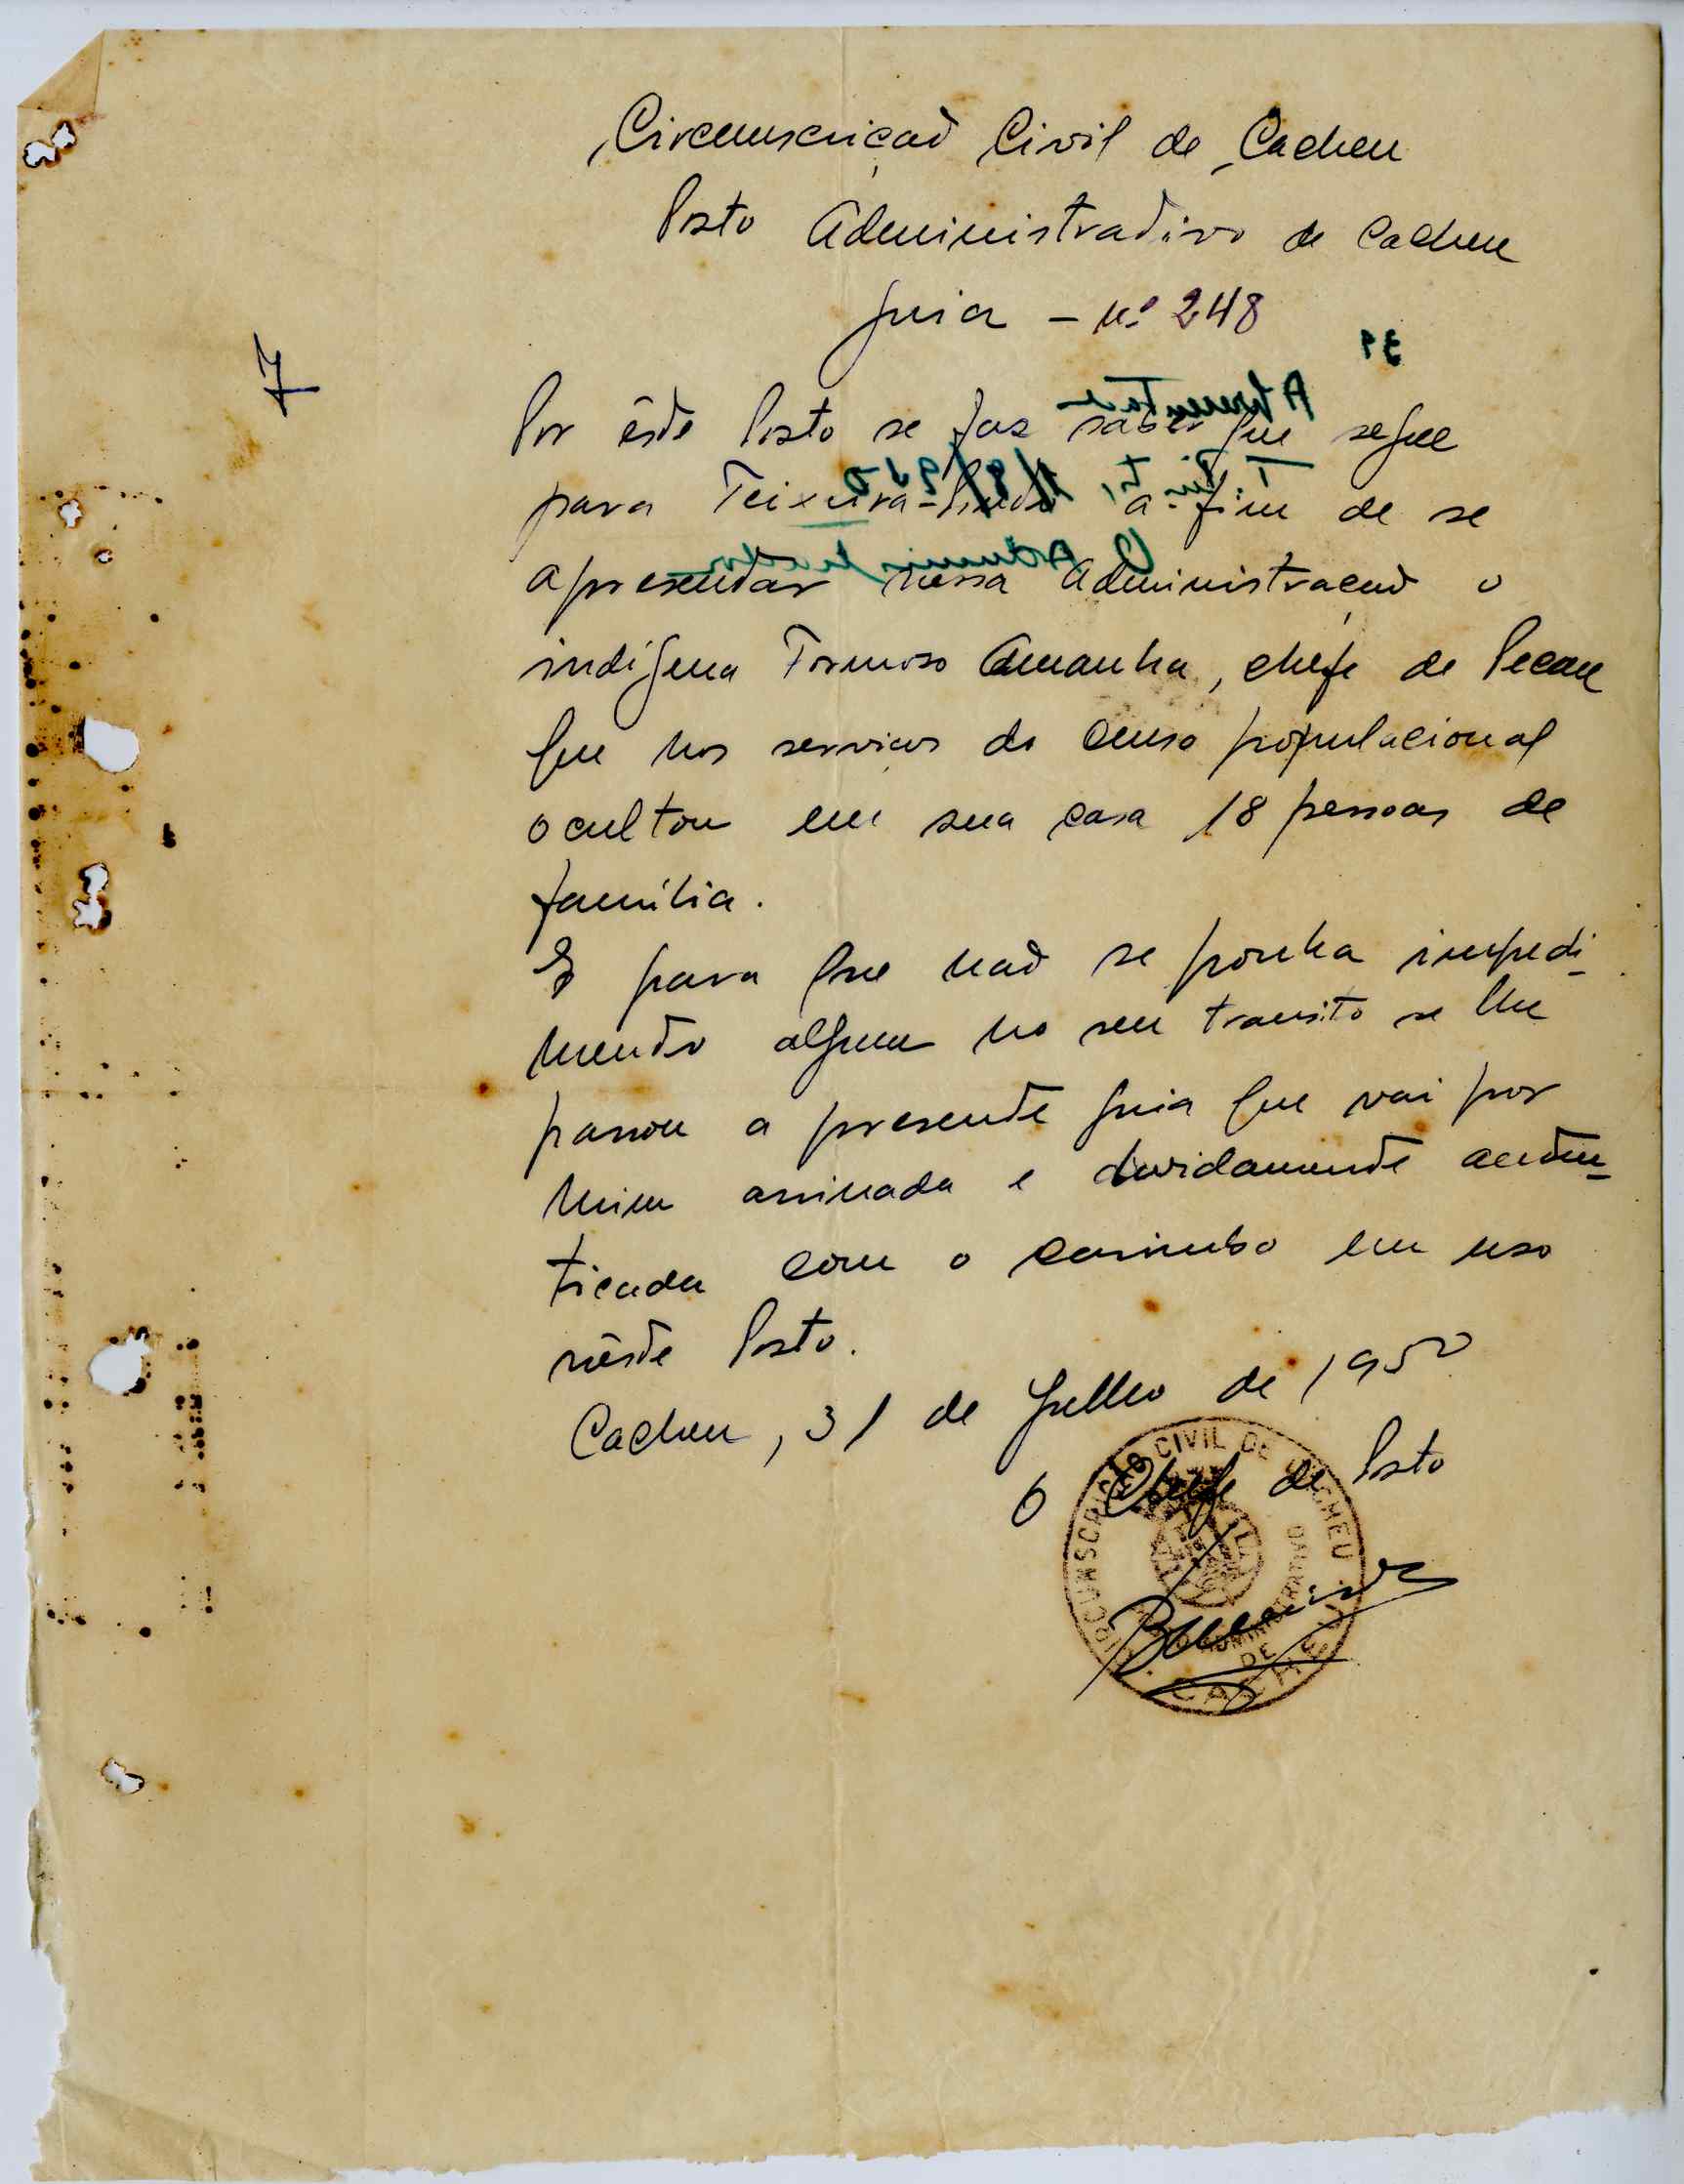 Circunscrição Civil de Cacheu
Posto Administrativo de Cacheu
Guia - Nº 248
7
Por êste Posto se faz saber que segue
para Teixeira-Pinto a-fim de se
apresentar nessa Administração o
indígena Formoso Amanha, chefe de Pecau
que nos serviços do censo populacional
ocultou em sua casa 18 pessoas de
família.
E para que não se ponha impedi-
mento algum no seu transito se lhe
passou a presente guia que vai por
mim assinada e devidamente autên-
ticada com o carimbo em uso
nêste Posto.
Cacheu, 31 de Julho de 1950
O Chefe de Posto
CIRCUNSCRIÇÃO CIVIL DE CACHEU
POSTO ADMINISTRATIVO
DE
CACHEU
39
Apresentado
T. Pinto, 1/8/950
O Administrador